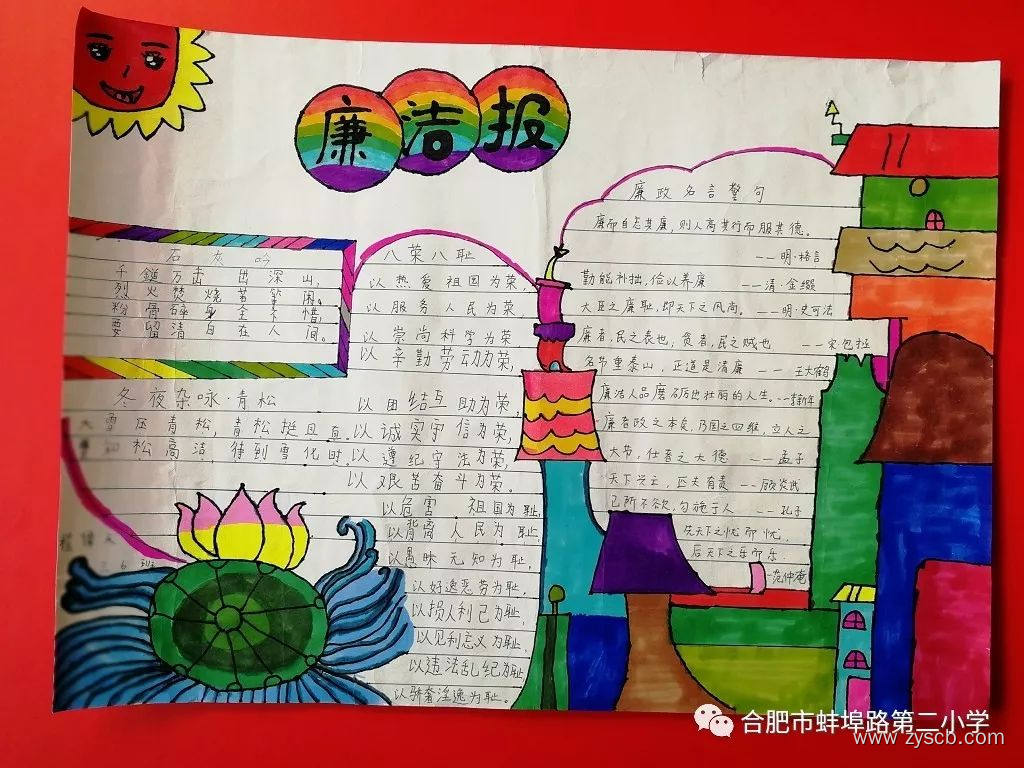 廉洁报
石灰吟
千鎚万击出深山，
烈火焚烧若等闲。
粉骨碎身全不惜，
要留清白在人间。
冬夜杂咏·青松
大雪压青松，青松挺且直。
松高洁，待到雪化时。
八荣八耻
以热爱祖国为荣，
以服务人民为荣，
以崇尚科学为荣，
以辛勤劳动为荣，
以团结互助为荣，
以诚实守信为荣，
以遵纪守法为荣，
以艰苦奋斗为荣。
以危害祖国为耻，
以背离人民为耻，
以愚昧无知为耻，
以好逸恶劳为耻，
以损人利己为耻，
以见利忘义为耻，
以违法乱纪为耻
以骄奢淫逸为耻。
廉政名言警句
廉而自忘其廉，则人高其行而服其德。
——明·格言
勤能补拙，俭以养廉 ——清·金缨
大臣之廉耻，即天下之风尚。——明·史可法
廉者，民之表也，贪者，民之贼也 ——宋包拯
名节重泰山，正道是清廉 —— 王大鹤
廉洁人品磨砺出壮丽的人生。
廉者政之本也，乃国之四维，立人之
大节，仕者之大德 ——孟子
天下兴亡，匹夫有责 ——顾炎武
己所不欲，勿施于人 ——孔子
先天下之忧而忧，
后天下之乐而乐。
—范仲淹
合肥市蚌埠路第二小学
www.zyscb.com